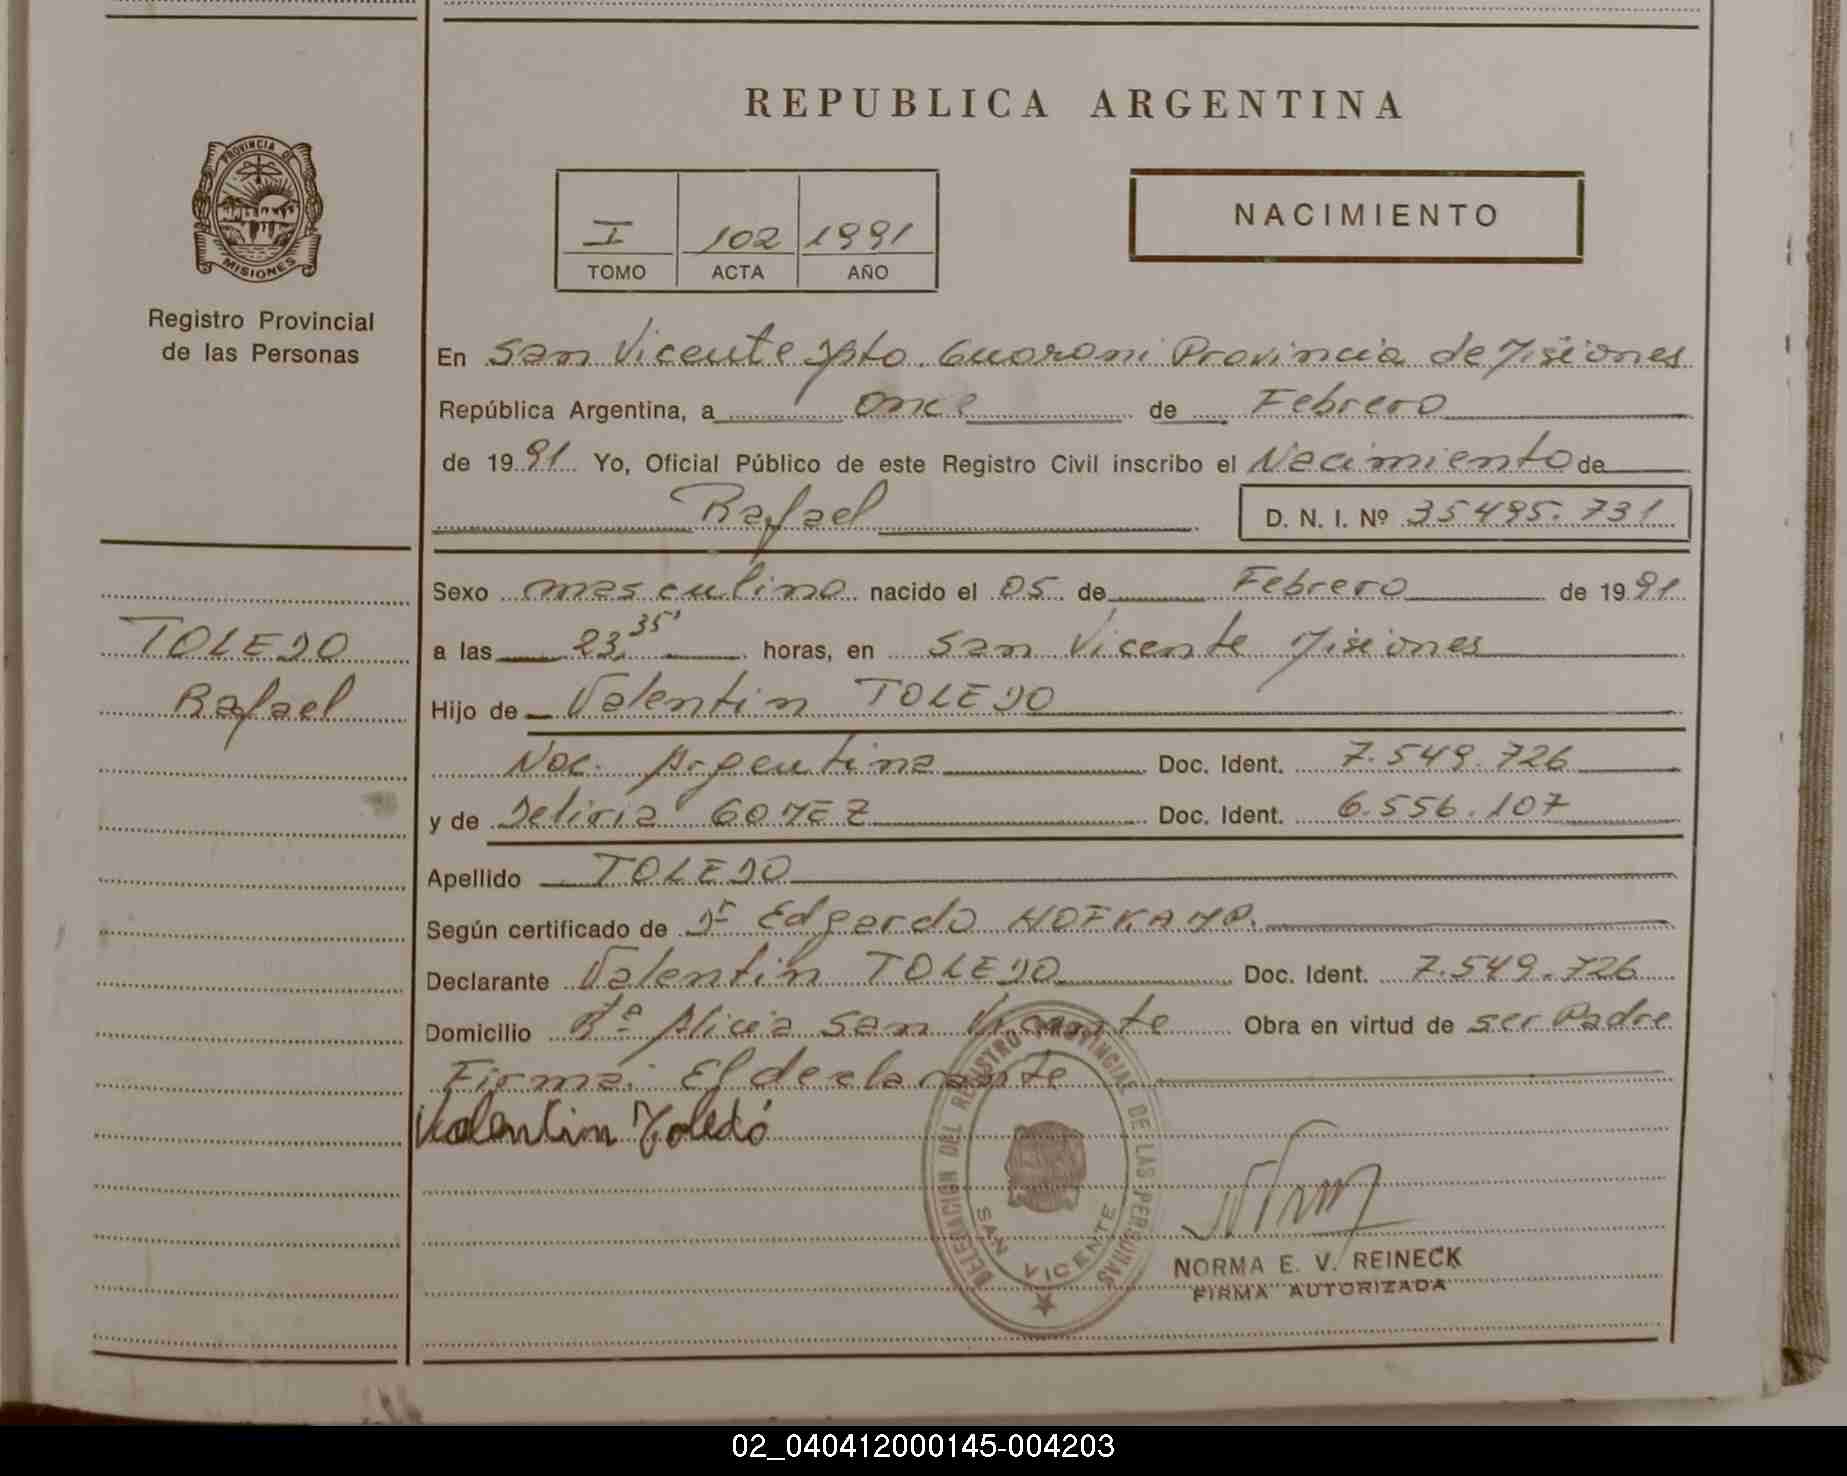 REPUBLICA ARGENTINA
PROVINCIA DE
MISIONES
Registro Provincial
de las Personas
I 102 1991
TOMO ACTA AÑO
NACIMIENTO
En San Vicente Dpto. Guarani Provincia de Misiones
República Argentina, a once de Febrero
de 1991 Yo, Oficial Público de este Registro Civil inscribo el Nacimiento de
Rafael D. N. I. Nº 35495.731
TOLEDO
Rafael
Sexo masculino nacido el 05 de Febrero de 1991
a las 23 35' horas, en San Vicente Misiones
Hijo de Valentin TOLEDO
Nac. Argentina Doc. Ident. 7.549.726
y de Deliria GOMEZ Doc. Ident. 6.556.107
Apellido TOLEDO
Según certificado de Dr Edgardo HOFKAMP.
Declarante Valentin TOLEDO Doc. Ident. 7.549.726
Domicilio Rta Alicia San Vicente Obra en virtud de ser Padre
Firma: El declarante
Valentin Toledó
DELEGACION DEL REGISTRO PROVINCIAL DE LAS PERSONAS
SAN VICENTE
NORMA E. V. REINECK
FIRMA AUTORIZADA
02_040412000145-004203